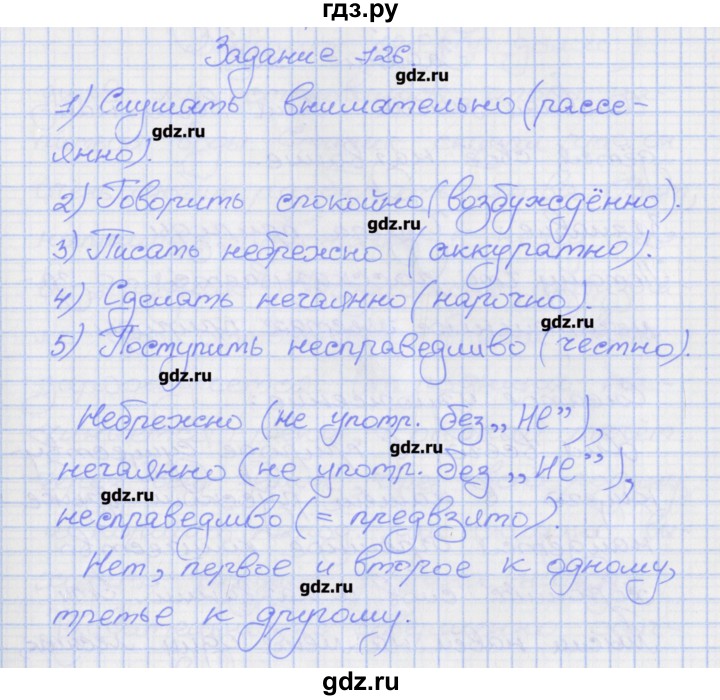 гдз.ру
Задание 126.
gdz.ru
1) Слушать внимательно (рассе-
gdz.ru
янно).
2) Говорить спокойно (возбуждённо).
gdz.ru
3) Писать небрежно (аккуратно).
4) Сделать нечаянно (нарочно).
gdz.ru
5) Поступить несправедливо (честно).
gdz.ru
Небрежно (не употр. без „НЕ”),
gdz.ru
нечаянно (не употр. без „НЕ”),
gdz.ru
несправедливо (= предвзято).
Нет, первое и второе к одному,
gdz.ru
третье к другому.
gdz.ru